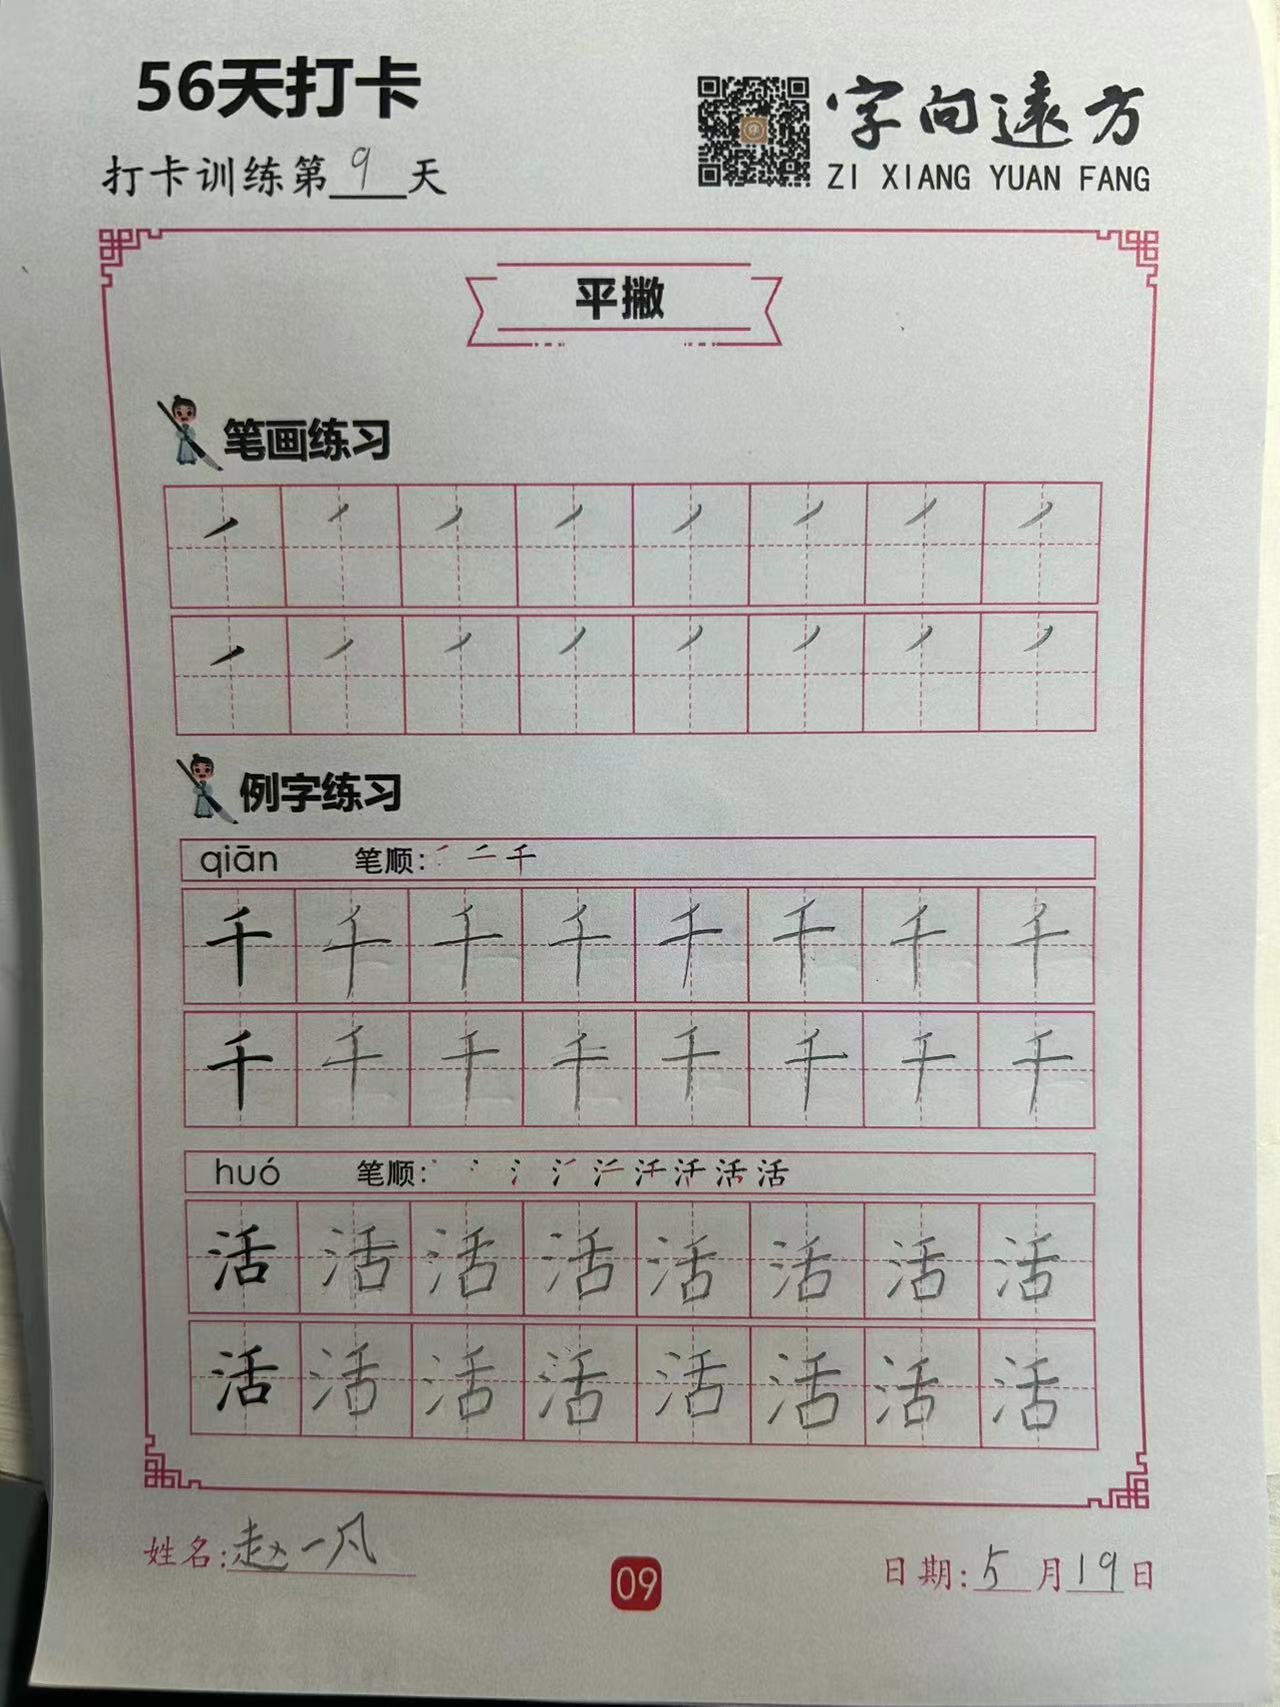 56天打卡
打卡训练第9天
字向遠方
ZI XIANG YUAN FANG
平撇
笔画练习
例字练习
qiān 笔顺: 千
千 千 千 千 千 千 千 千
千 千 千 千 千 千 千 千
huó 笔顺: 活
活 活 活 活 活 活 活 活
活 活 活 活 活 活 活 活
姓名:赵一凡
09
日期:5月19日